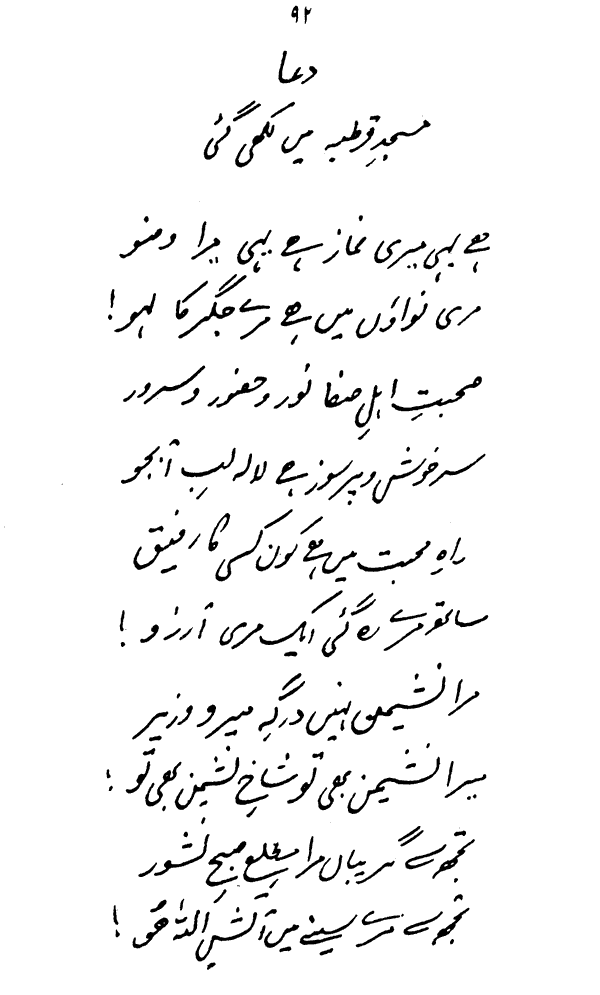 ۹۲
دعا
مسجدِ قرطبہ میں لکھی گئی
ہے یہی میری نماز ہے یہی میرا وضو
مری نواؤں میں ہے مرے جگر کا لہو!
صحبتِ اہلِ صفا نور و حضور و سرور
سرخوش و پرسوز ہے لالہ لبِ آبجو
راہِ محبت میں ہے کون کسی کا رفیق
ساتھ مرے رہ گئی ایک مری آرزو!
مرا نشیمن نہیں درگہِ میر و وزیر
میرا نشیمن بھی تو شاخِ نشیمن بھی تو!
تجھ سے گریباں مرا مطلعِ صبحِ نشور
تجھ سے مرے سینے میں آتشِ اللہ ھو!